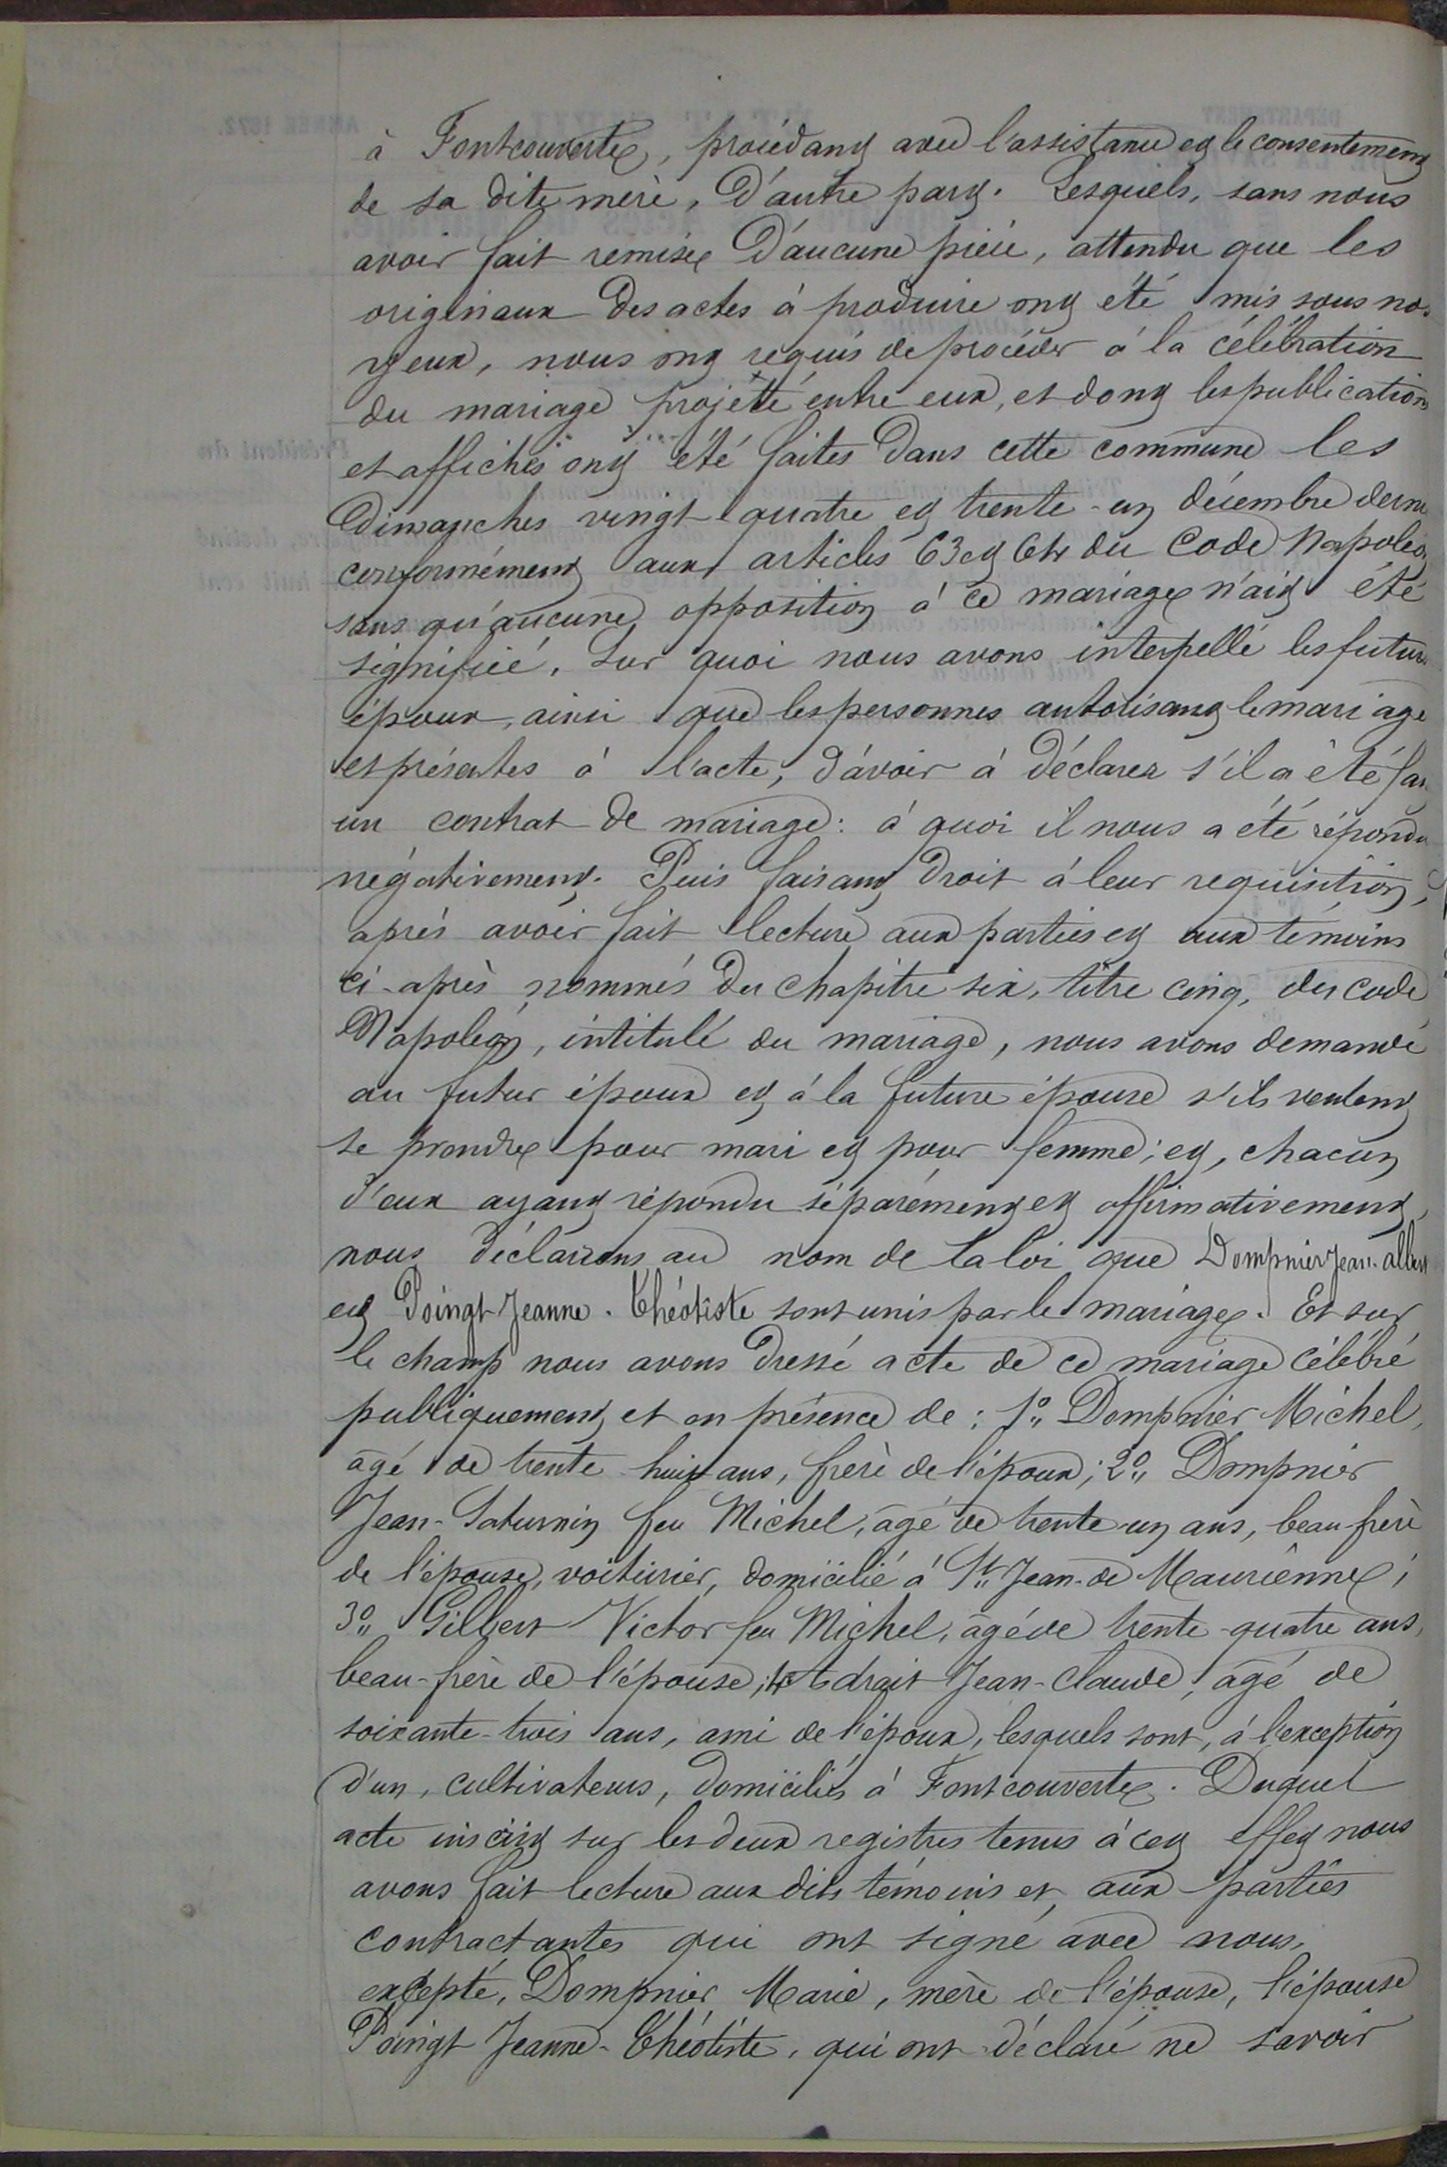 à Fontcouverte, procédant avec l'assistance et le consentement
de sa dite mère, d'autre part. Lesquels, sans nous
avoir fait remise d'aucune pièce, attendu que les
originaux des actes à produire ont été mis sous nos
yeux, nous ont requis de procéder à la célébration
du mariage projeté entre eux, et dont les publications
et affiches ont été faites dans cette commune les
Dimanches vingt-quatre et trente-un décembre dern
conformément aux articles 63 et 64 du Code Napoléon
sans qu'aucune opposition à ce mariage n'ait été
signifiée. Sur quoi nous avons interpellé les futurs
époux, ainsi que les personnes autorisant le mariage
et présentes à l'acte, d'avoir à déclarer s'il a été fai
un contrat de mariage: à quoi il nous a été répondu
négativement. Puis faisant droit à leur requisition,
après avoir fait lecture aux parties et aux témoins
ci-après nommés du chapitre six, titre cinq, du code
Napoléon, intitulé du mariage, nous avons demandé
au futur époux et à la future épouse s'ils veulent
se prendre pour mari et pour femme; et, chacun
d'eux ayant répondu séparément et affirmativement,
nous déclarons au nom de la loi que Dompnier Jean-Albert
et Poingt Jeanne-Théotiste sont unis par le mariage. Et sur
le champ nous avons dressé acte de ce mariage célébré
publiquement et en présence de: 1º Dompnier Michel,
âgé de trente huit ans, frère de l'époux; 2º Dompnier
Jean-Saturnin feu Michel, âgé de trente-un ans, beau frère
de l'épouse, voiturier, domicilié à St Jean-de Maurienne;
3º Gilbert Victor feu Michel, âgé de trente-quatre ans,
beau-frère de l'épouse; 4º Adrait Jean-Claude, âgé de
soixante-trois ans, ami de l'époux, lesquels sont, à l'exception
d'un, cultivateurs, domiciliés à Fontcouverte. Duquel
acte inscrit sur les deux registres tenus à cet effet nous
avons fait lecture aux dits témoins et aux parties
contractantes qui ont signé avec nous,
excepté, Dompnier Marie, mère de l'épouse, l'épouse
Poingt Jeanne-Théotiste, qui ont déclaré ne savoir